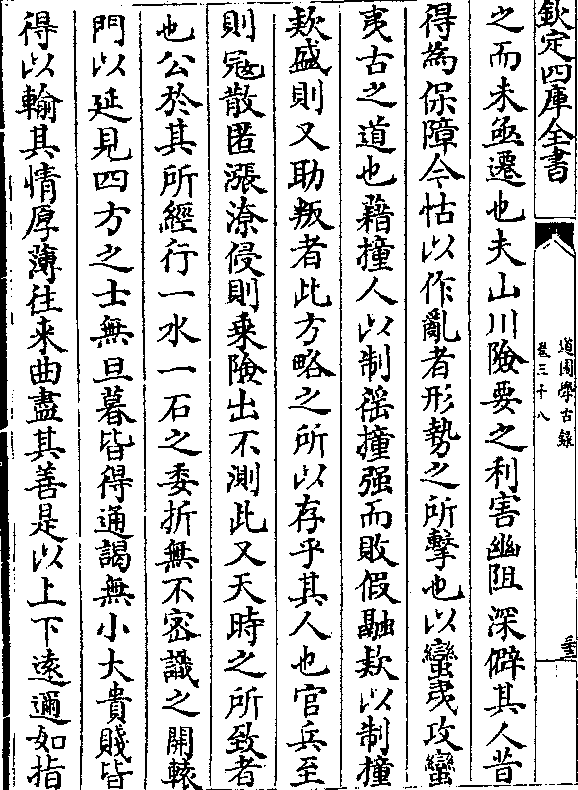 欽定四庫全書
道園學古錄
卷三十八
三
之而未亟遷也夫山川險要之利害幽阻深僻其人昔
得為保障今怙以作亂者形勢之所擊也以蠻夷攻蠻
夷古之道也藉撞人以制徭撞强而敗假融欵以制撞
欵盛則又助叛者此方略之所以存乎其人也官兵至
則冦散匿漲潦侵則乗險出不測此又天時之所致者
也公於其所經行一水一石之委折無不密識之開轅
門以延見四方之士無旦暮皆得通謁無小大貴賤皆
得以輸其情厚薄往来曲盡其善是以上下逺邇如指